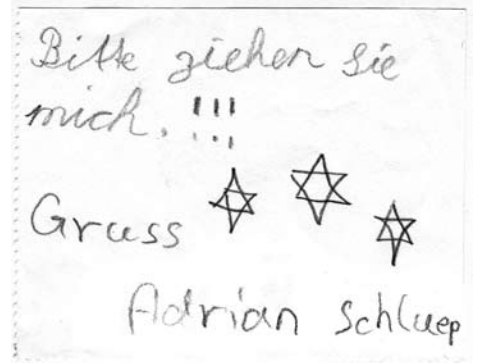 Bitte ziehen Sie
mich. !!!
Gruss
Adrian Schluep